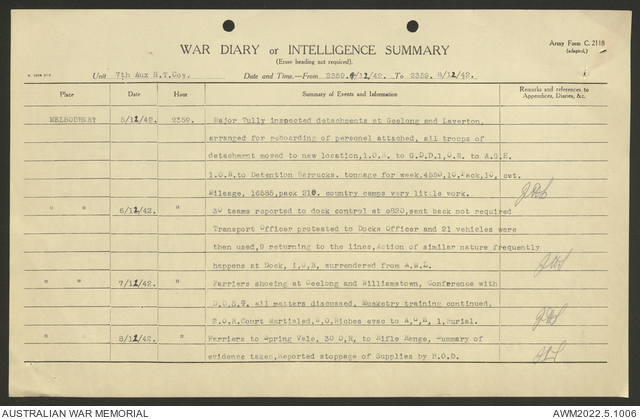 Army Form C. 2118
(adapted.)
WAR DIARY or INTELLIGENCE SUMMARY
(Erase heading not required).
Unit 7th Aux H.T.Coy. Date and Time.—From 2359. /12/42. To 2359. 8/12/42.
Place Date Hour Summary of Events and Information Remarks and references to Appendices, Diaries, &c.
MELBOURNE 5/12/42. 2359. Major Tully inspected detachments at Geelong and Laverton,
arranged for reboarding of personel attached, all troops of
detachment moved to new location, 1.O.R. to G.D.D. 1,O.R. to A.G.H.
1.O.R, to Detention Barracks. tonnage for week, 4550, 10.Pack, 10, cwt.
Mileage, 16585, pack 216. country camps very little work.
" " 6/12/42. " 30 teams reported to dock control at 0820, sent back not required
Transport Officer protested to Docks Officer and 21 vehicles were
then used, 9 returning to the lines, Action of similar nature frequently
happens at Dock, 1,O,R, surrendered from A.W.L.
" " 7/12/42. " Farriers shoeing at Geelong and Williamstown, Conference with
D.D.S.T. all matters discussed, Musketry training continued,
Court Martialed, Riches evac to 1,Burial.
" " 8/12/42. " Farriers to Spring Vale, 30 O,R, to Rifle Range, Summary of
evidence taken, Reported stoppage of Supplies by
AUSTRALIAN WAR MEMORIAL
AWM2022.5.1006